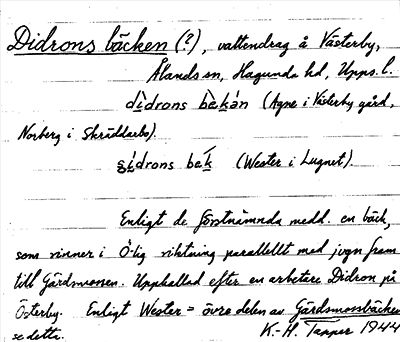 Didrons bäcken (?), vattendrag å Västerby,
Ålands sn, Hagunda hd, Upps. l.
dìdrons bàkàn (Agne i Västerby gård,
Norberg i Skräddarbo).
sídrons bek (Wester i Lugnet).
Enligt de förstnämnda medd. en bäck,
som rinner i Ö-lig riktning parallellt med jvgn fram
till Gärdsmossen. Uppkallad efter en arbetare Didron på
Österby. Enligt Wester = övre delen av Gärdsmossbäcken
se detta. K.-H. Tapper 1944